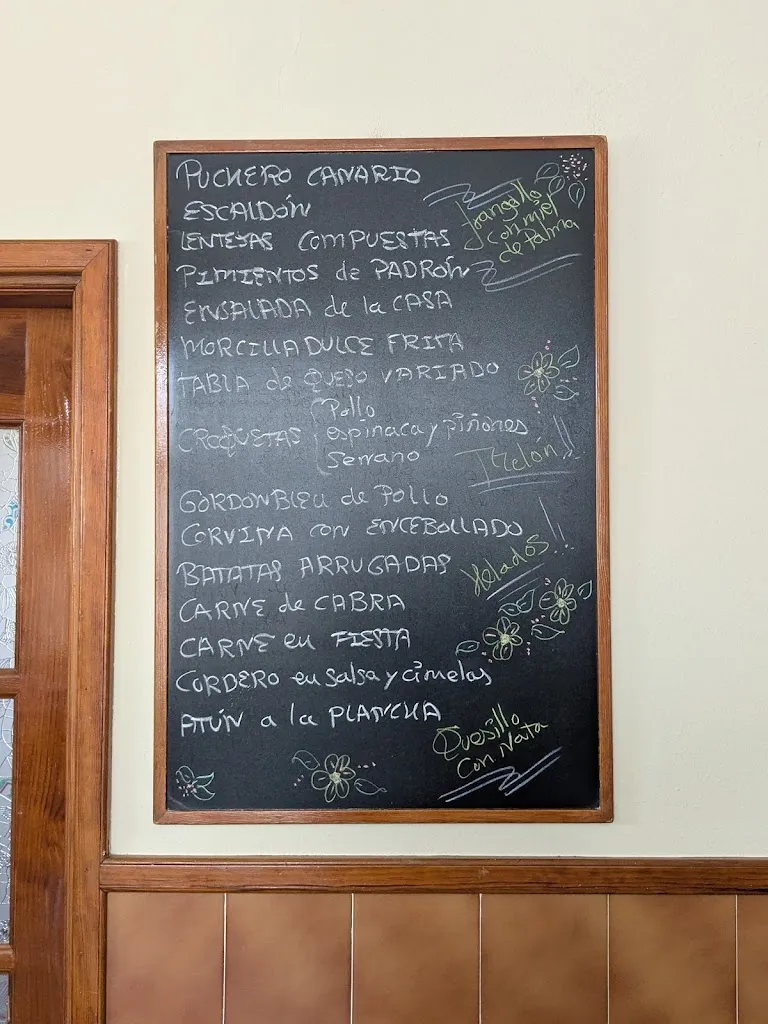 PUCHERO CANARIO
ESCALDÓN
LENTEJAS COMPUESTAS
PIMIENTOS de PADRÓN
ENSALADA de la CASA
MORCILLA DULCE FRITA
TABLA de QUESO VARIADO
CROQUETAS
Pollo
espinaca y piñones
Serrano
GORDONBLEU de POLLO
CORVINA CON ENCEBOLLADO
BATATAS ARRUGADAS
CARNE de CABRA
CARNE en FIESTA
CORDERO en salsa y ciruelas
ATÚN a la PLANCHA
Frangollo
con miel
de Palma
Melón!!
Helados!!
Quesillo
Con Nata